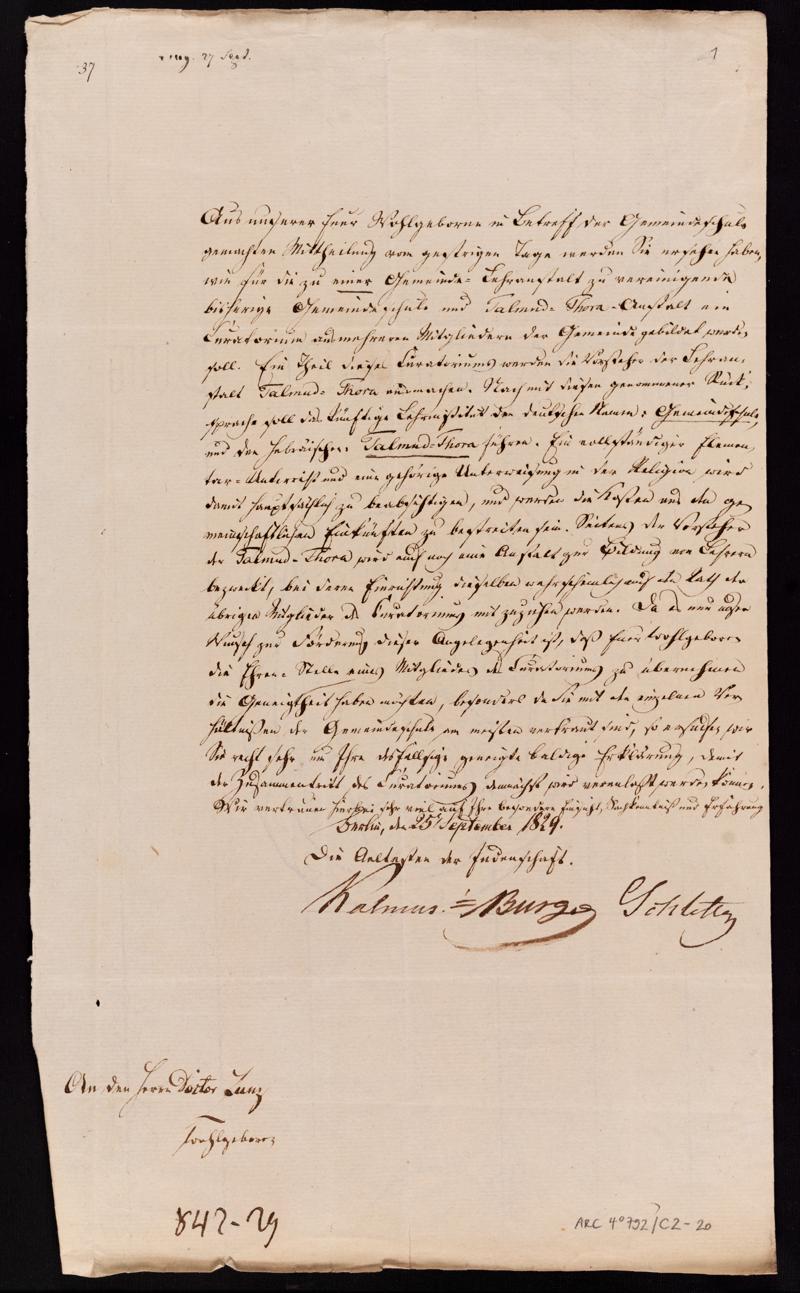 37
eing. 27 Sept.
1
Aus unserer Euer Wohlgeboren in Betreff der Gemeindeschule
gemachten Mittheilung vom gestrigen Tage werden Sie ersehen haben,
wie für die zu einer Gemeinde-Lehranstalt zu vereinigende
bisherige Gemeindeschule und Talmud-Thora-Anstalt ein
Curatorium aus mehreren Mitgliedern der Gemeinde gebildet werden
soll. Ein Theil dieses Curatoriums werden die Vorsteher der Lehran-
stalt Talmud-Thora ausmachen. Nach mit diesen genommener Rück-
sprache soll das künftige Lehrinstitut den deutschen Namen: Gemeindeschule,
und den hebräischen: Talmud-Thora führen. Ein vollständiger Elemen-
tar-Unterricht und eine gehörige Unterweisung in der Religion wird
damit hauptsächlich zu beabsichtigen, und werden die Kosten aus den ge-
meinschaftlichen Einkünften zu bestreiten sein. Seitens der Vorsteher
der Talmud-Thora wird auch noch eine Anstalt zur Bildung von Lehrern
bezweckt, bei deren Einrichtung dieselben wahrscheinlich auch den Rath der
übrigen Mitglieder des Curatoriums mit zuziehen werden. Da es nun unser
Wunsch zur Förderung dieser Angelegenheit ist, daß Euer Wohlgeboren
die Ehren-Stelle eines Mitgliedes des Curatoriums zu übernehmen
die Geneigtheit haben möchten, besonders da Sie mit den einzelnen Ver-
hältnißen der Gemeindeschule am meisten vertraut sind, so ersuchen wir
Sie recht sehr um Ihre desfallsige geneigte baldige Erklärung, damit
der Zusammentritt des Curatoriums demnächst wird veranlaßt werden können.
Wir vertrauen hierbei sehr viel auf Ihre besondere Einsicht, Sachkenntniß und Erfahrung
Berlin, den 25 September 1829.
Die Aeltesten der Judenschaft.
Kalmus. Burger Schlettz
An den Herrn Doctor Zunz
Wohlgeboren
842-29
ARC 4°792/C2-20